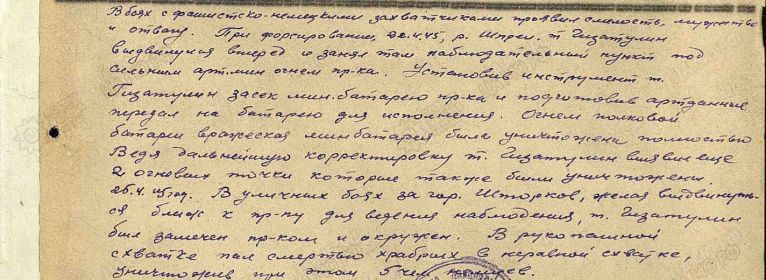 В боях с фашистско-немецкими захватчиками проявил смелость, мужество
и отвагу. При форсировании, 22.4.45, р. Шпреи. т. Гизатулин
выдвинулся вперед и занял там наблюдательный пункт под
сильным арт.мин огнем пр-ка. Установив инструмент т.
Гизатулин засек мин.батарею пр-ка и подготовив артданные
передал на батарею для исполнения. Огнем полковой
батареи вражеская минбатарея была уничтожена полностью
Ведя дальнейшую корректировку т. Гизатулин выявил еще
2 огновых точки которые также были уничтожены.
25.4.45 год. В уличных боях за гор. Шторков, желая выдвинуть-
ся ближе к пр-ку для ведения наблюдения, т. Гизатулин
был замечен пр-ком и окружен. В рукопашной
схватке пал смертью храбрых в неравной схватке,
уничтожив при этом 5 чел. немцев.